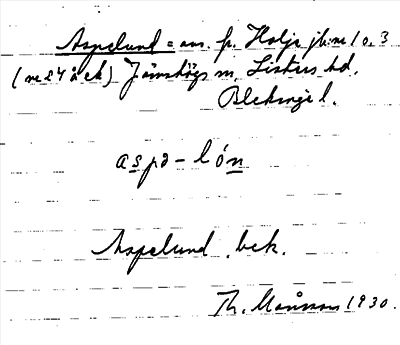 Aspelund = ms. fr. Holje jb. nr 10.3
(nr 24 å ek) Jämshögs sn, Listers hd.
Blekinge l.
aspə-lón
Aspelund, bek.
Th. Månsson 1930.